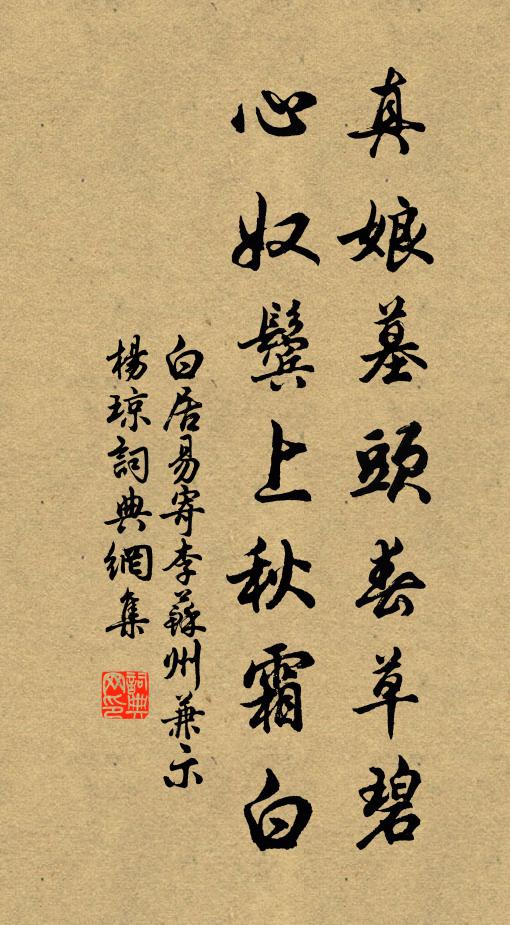 真娘墓頭春草碧
心奴鬓上秋霜白
白居易寄李蘇州兼示
楊琼詞典網集
詞典